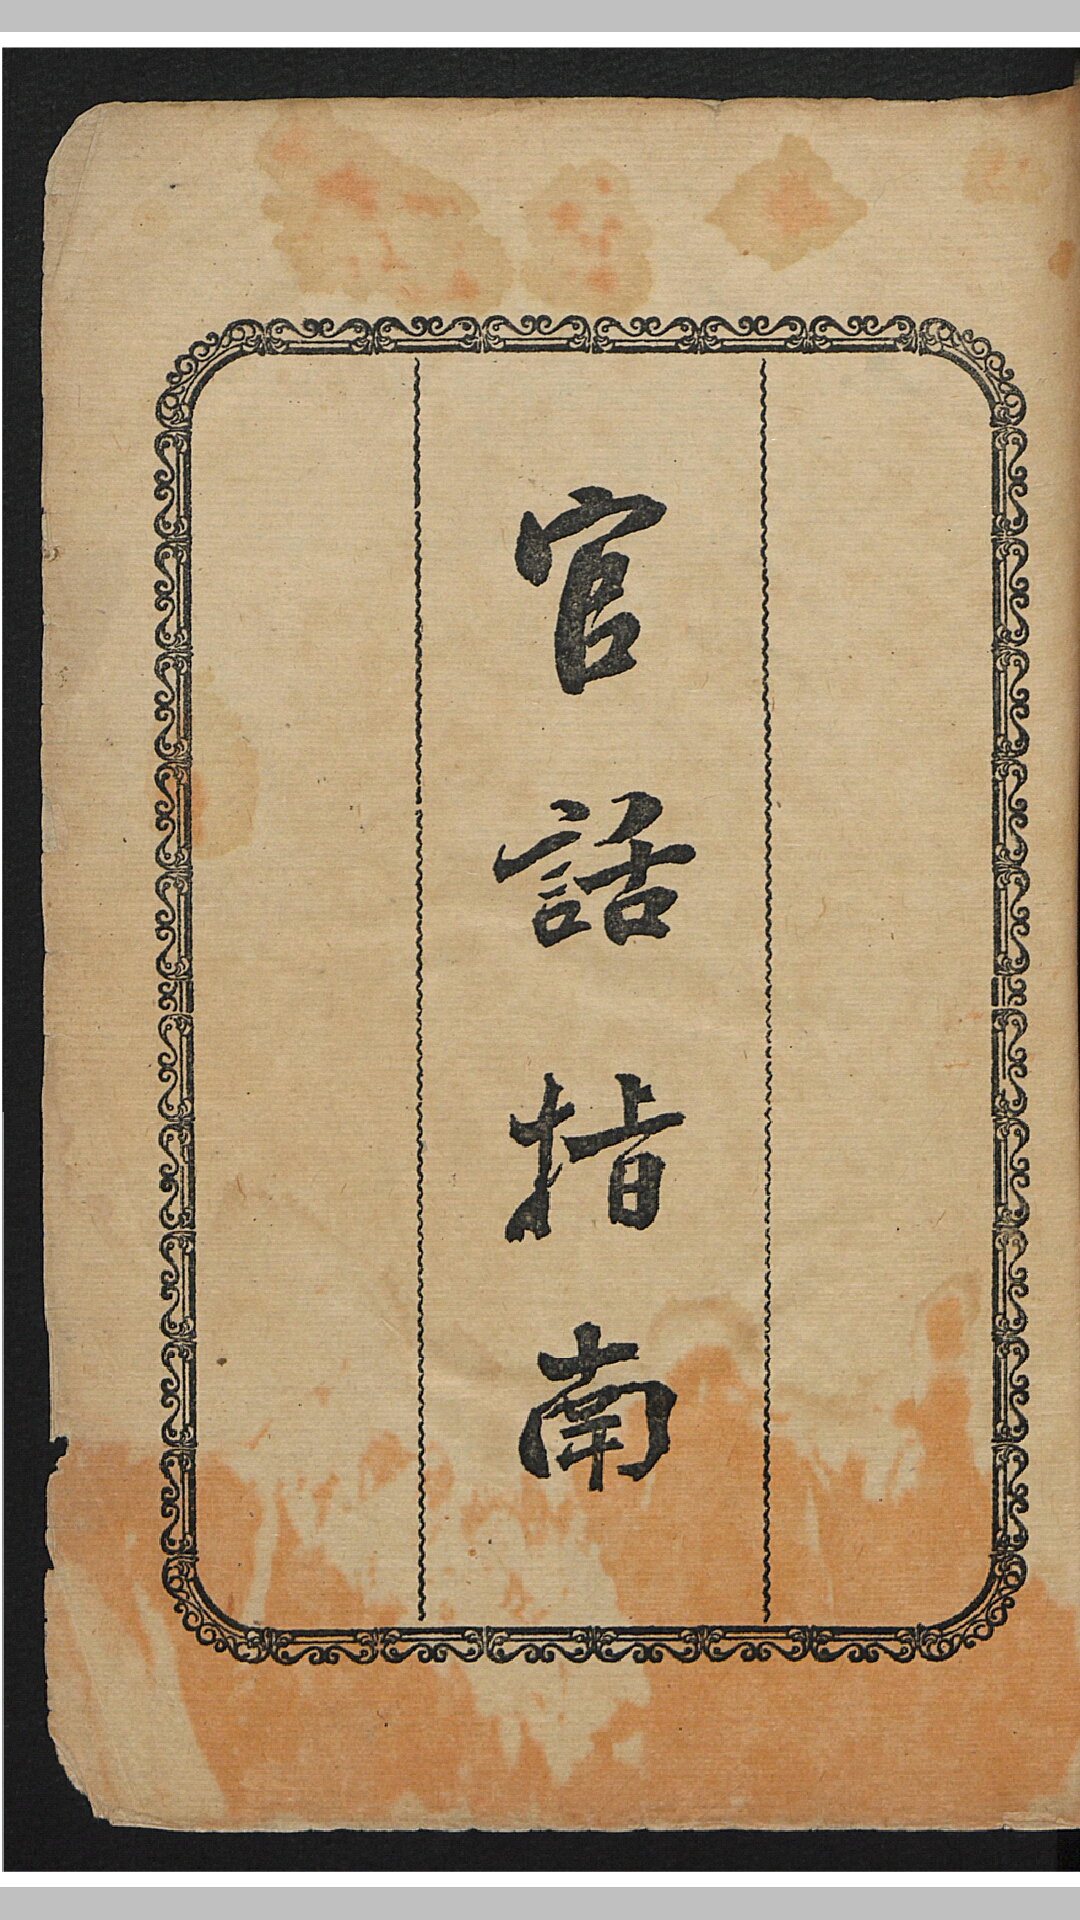 官話指南